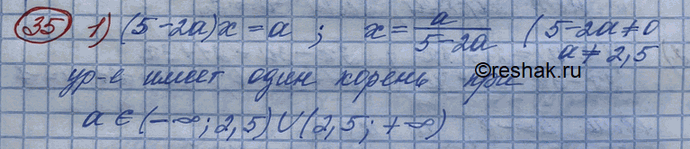 35 1) (5-2a)x = a ; x = a/(5-2a) (5-2a≠0
a≠2,5
ур-е имеет один корень при
a ∈ (-∞; 2,5) ∪ (2,5; +∞)
©reshak.ru